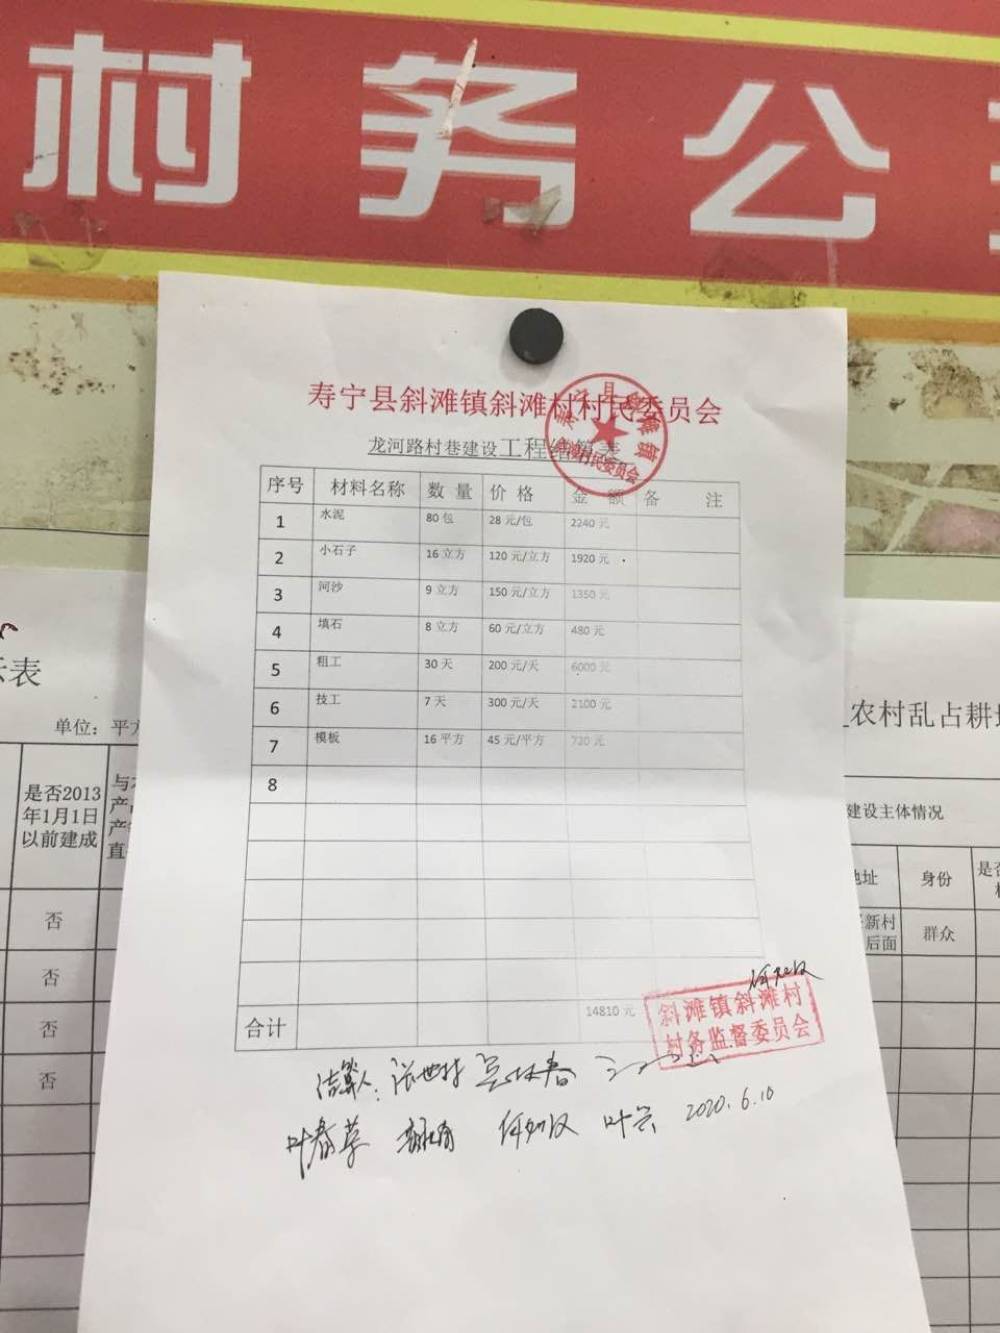 村务公
寿宁县斜滩镇斜滩村村民委员会
龙河路村巷建设工程结算表
序号 材料名称 数量 价格 金额 备注
1 水泥 80包 28元/包 2240元
2 小石子 16立方 120元/立方 1920元
3 河沙 9立方 150元/立方 1350元
4 填石 8立方 60元/立方 480元
5 粗工 30天 200元/天 6000元
6 技工 7天 300元/天 2100元
7 模板 16平方 45元/平方 720元
8
合计 14810元
斜滩镇斜滩村
村务监督委员会
结算人:
叶春草 叶兴 2020.6.10
示表
单位:平方
是否2013
年1月1日
以前建成
否
否
否
否
农村乱占耕地
建设主体情况
地址 身份 是否
新村
后面
群众